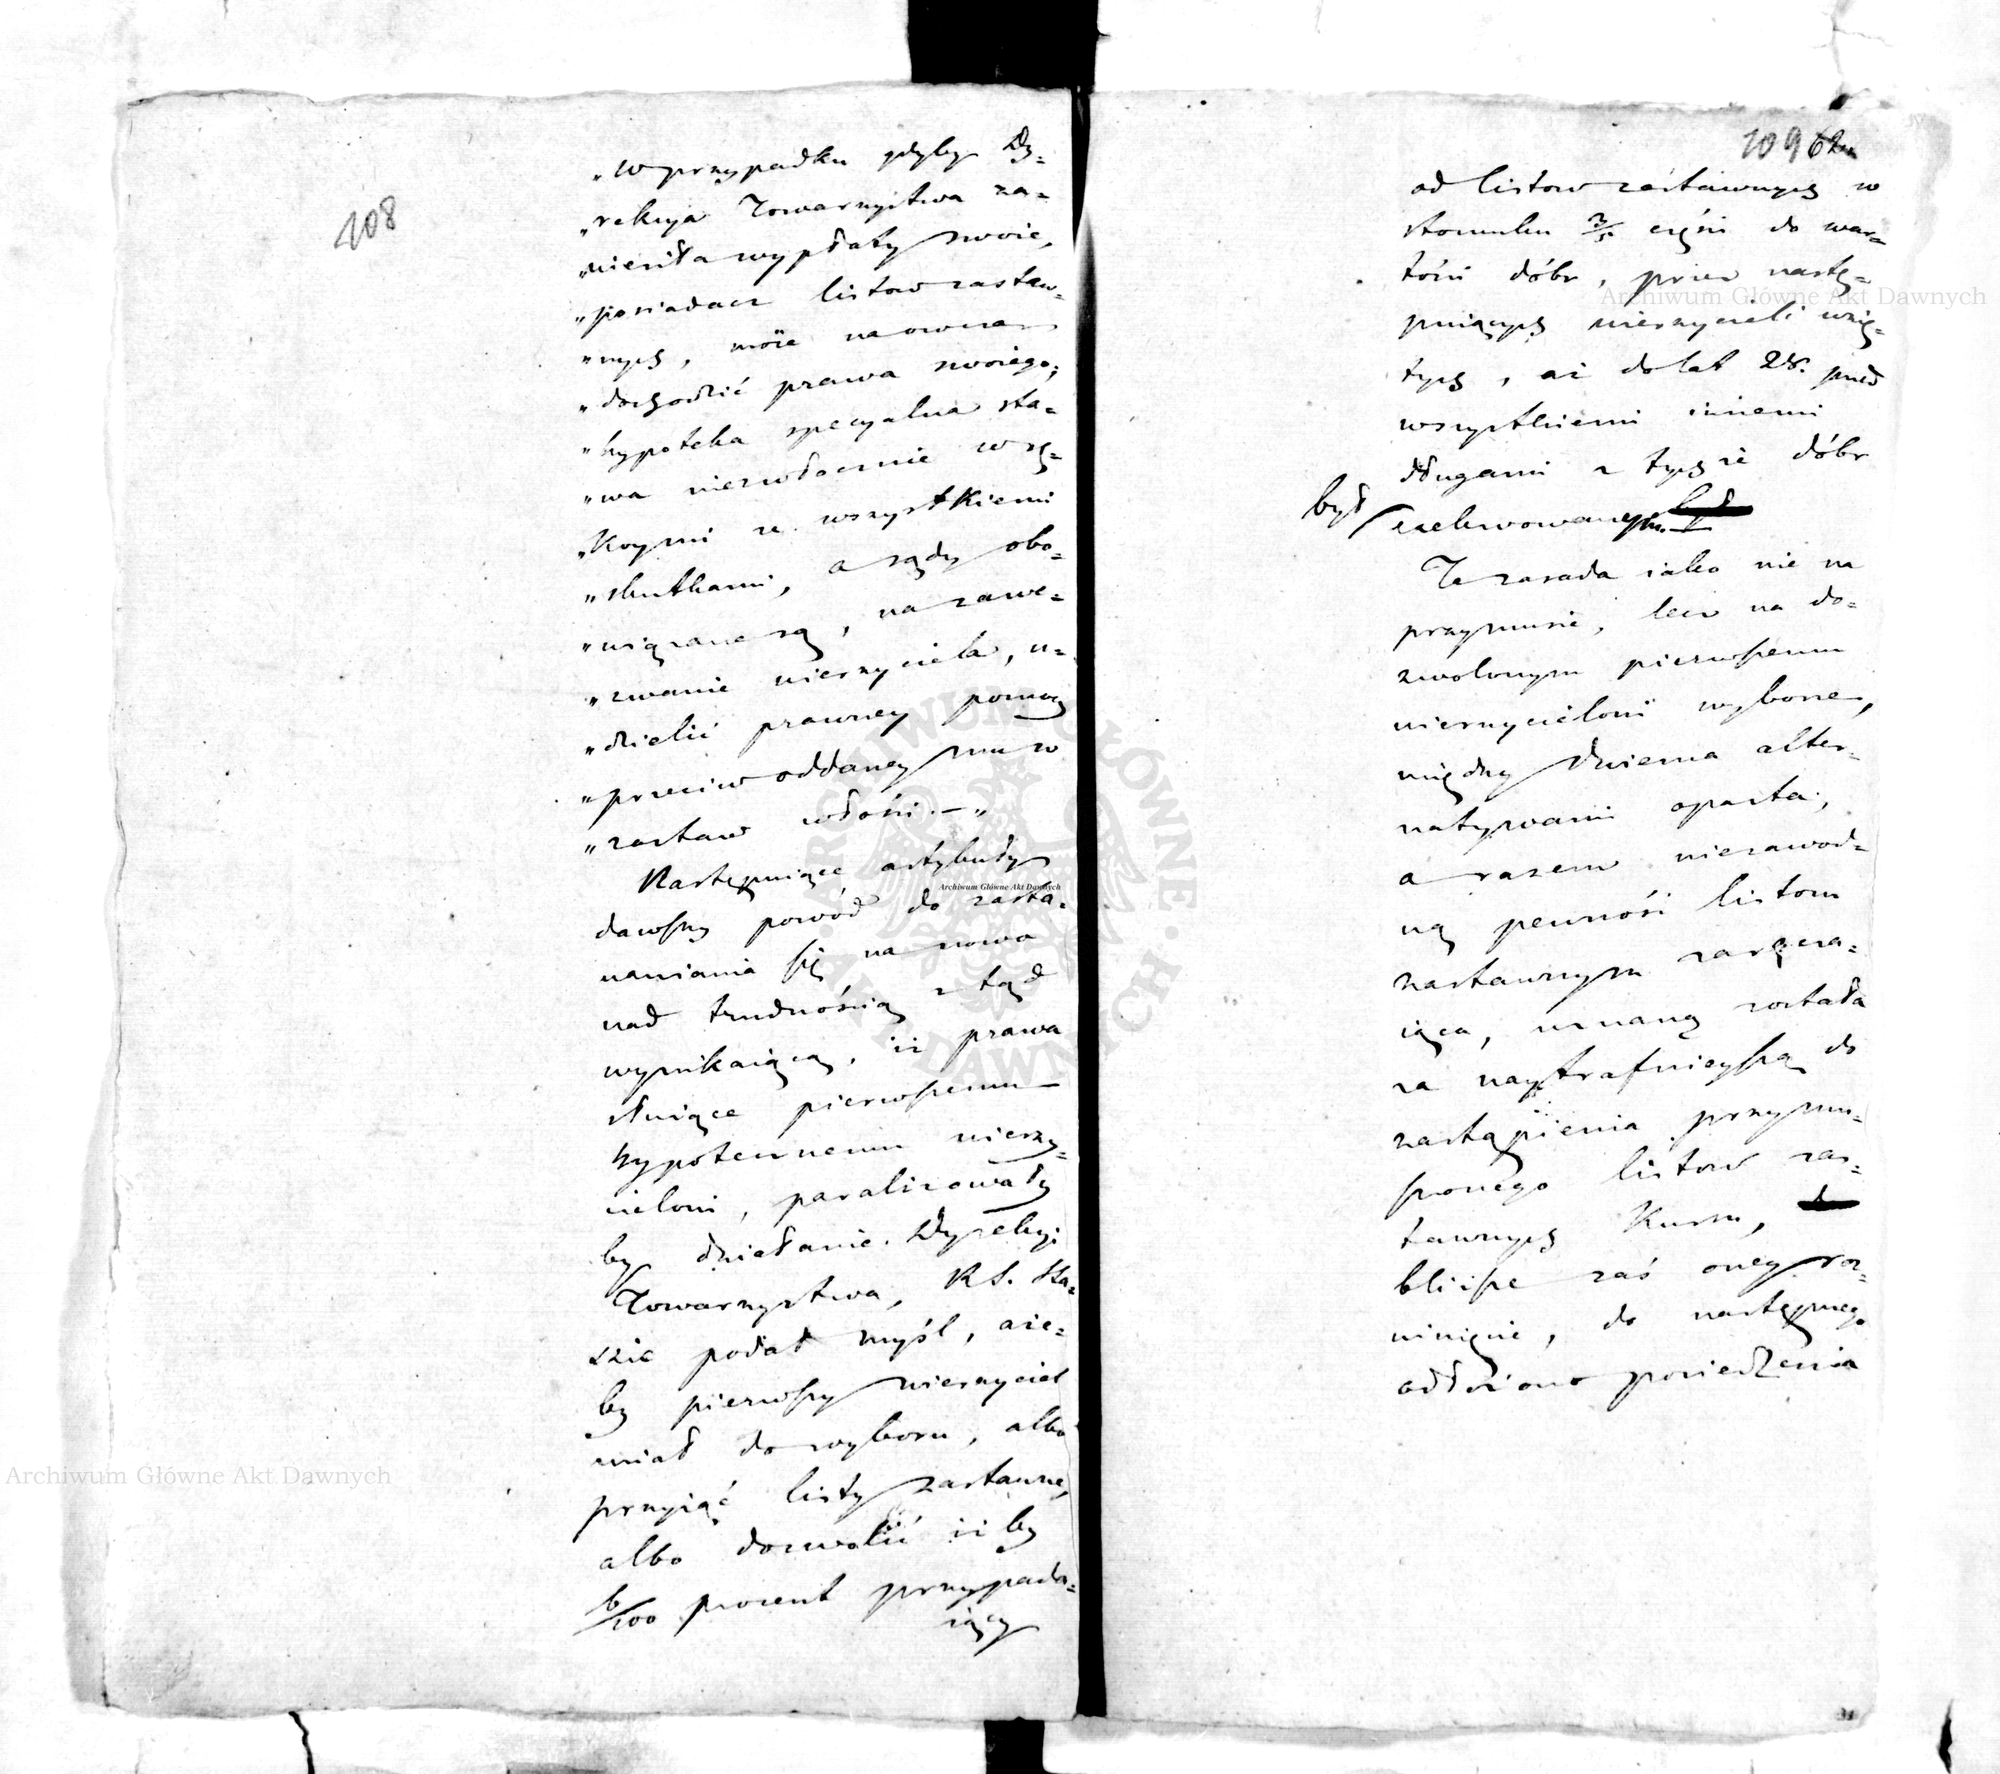 108
„W przypadku gdyby Dy=
„rekcya Towarzystwa za=
„wiesiła wypłaty swoie,
„posiadacz listow zastaw=
„nych, może naowczas
„dochodzić prawa swoiego;
„hypoteka specyalna sta=
„wa niezwłocznie w rę=
„Koymi ze wszystkiemi
„skutkami, a sądy obo=
„wiązane są, na zawe=
„zwanie wierzyciela, u=
„dzielić prawney pomocy
„przeciw oddaney mu w
„zastaw włości.—„
Następuiące artykuły
dawszy powód do zasta=
nawiania się na nowo
nad trudnością z tąd
wynikaiącą, iż prawa
służące pierwszemu
hypotecznemu wierzy=
cielowi, paralizowały
by działanie Dyrekcyi
Towarzystwa, RS. Sta=
szic podał myśl, aże=
by pierwszy wierzyciel
miał do wyboru, albo
przyiąć listy zastawne,
albo dozwolić iżby
6/100 procent przypada=
iący
109 62
od listow zastawnych w
stosunku 2/5 części do war=
tości dóbr, przez nastę=
puiących wierzycieli wzię=
tych, aż do lat 28. przed
wszystkiemi innemi
długami z tychże dóbr
był exekwowanym.
Ta zasada iako nie na
przymusie, lecz na do=
zwolonym pierwszemu
wierzycielowi wyborze,
między dwiema alter=
natywami oparta,
a razem niezawod=
ną pewność listom
zastawnym zaręcza=
iąca, uznaną została
za naytrafnieyszą do
zastąpienia przymu=
szonego listow zas=
tawnych Kursu,
bliższe zaś oney roz=
winięcie, do następnego
odłożono posiedzenia
Archiwum Główne Akt Dawnych
Archiwum Główne Akt Dawnych
Archiwum Główne Akt Dawnych
ARCHIWUM GŁÓWNE AKT DAWNYCH